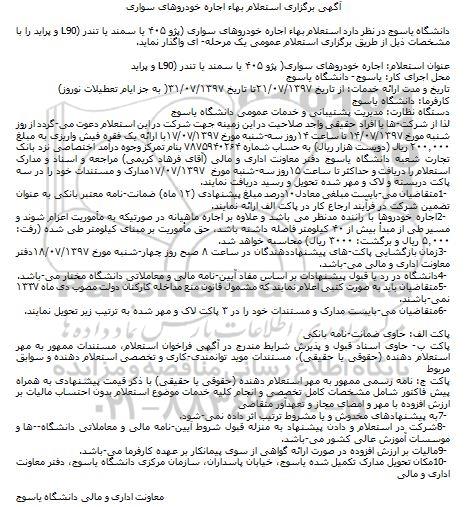 آگهی برگزاری استعلام بهاء اجاره خودروهای سواری
دانشگاه یاسوج در نظر دارد استعلام بهاء اجاره خودروهای سواری (پژو ۴۰۵ یا سمند یا تندر L90) و پراید را با
مشخصات ذیل از طریق برگزاری استعلام عمومی یک مرحله- ای واگذار نماید.
عنوان استعلام: اجاره خودروهای سواری( پژو ۴۰۵ یا سمند یا تندر L90) و پراید
محل اجرای کار: یاسوج- دانشگاه یاسوج
تاریخ و مدت ارائه خدمات: از تاریخ ۲۱/۰۷/۱۳۹۷تا تاریخ ۳۱/۰۷/۱۳۹۷( به جز ایام تعطیلات نوروز)
کارفرما: دانشگاه یاسوج
دستگاه نظارت: مدیریت پشتیبانی و خدمات عمومی دانشگاه یاسوج
لذا از شرکت-ها یا افراد حقیقی واجد صلاحیت در این زمینه جهت شرکت در این استعلام دعوت می-گردد از روز
شنبه مورخ ۱۴/۰۷/۱۳۹۷ تا ساعت ۱۴روز سه-شنبه مورخ ۱۷/۰۷/۱۳۹۷با ارائه یک فقره فیش واریزی به مبلغ
۲۰۰,۰۰۰ ریال (دویست هزار ریال) به حساب شماره ۷۸۷۵۹۴۰۲۶۴ بنام تمرکز وجوه درآمد اختصاصی نزد بانک
تجارت شعبه دانشگاه یاسوج دفتر معاونت اداری و مالی (آقای فرهاد کریمی) مراجعه و اسناد و مدارک
استعلام را دریافت و حداکثر تا ساعت ۱۵روز سه-شنبه مورخ ۱۷/۰۷/۱۳۹۷مدارک و مستندات خود را در سه
پاکت دربسته و لاک و مهر شده تحویل و رسید دریافت نمایند.
1-متقاضیان می-بایست مبلغی معادل۱۰درصد مبلغ پیشنهادی (۱۲ ماه) ضمانت-نامه معتبر بانکی به عنوان
تضمین شرکت در فرآیند ارجاع کار در پاکت الف ارائه نمایند.
2-اجاره خودروها با راننده مدنظر می باشد و علاوه بر اجاره ماهیانه در صورتیکه به مأموریت اعزام شوند و
مسیر طی از مبدأ بیش از ۴۰ کیلومتر فاصله داشته باشد، حق مأموریت بر مبنای کیلومتر طی شده (رفت:
۵,۰۰۰ ریال و برگشت: ۳۰۰۰ ریال) محاسبه خواهد شد.
3-زمان بازگشایی پاکت-های پیشنهاددهندگان در ساعت ۸ صبح روز چهار-شنبه مورخ ۱۸/۰۷/۱۳۹۷دفتر
معاونت اداری و مالی می-باشد.
4-دانشگاه در رد یا قبول پیشنهادات بر اساس مفاد آیین-نامه مالی و معاملاتی دانشگاه مختار می-باشد.
5-متقاضیان باید به صورت کتبی اعلام نمایند که مشمول قانون منع مداخله کارکنان دولت مصوب دی ماه ۱۳۳۷
نمی-باشند.
6-متقاضیان می-بایست مدارک و مستندات خود را در ۳ پاکت لاک و مهر شده به ترتیب زیر تحویل نمایند.
پاکت الف: حاوی ضمانت-نامه بانکی
پاکت ب- حاوی اسناد قبول و پذیرش شرایط مندرج در آگهی فراخوان استعلام، مستندات ممهور به مهر
استعلام دهنده (حقوقی یا حقیقی)، مستندات موید توانمندی-کاری و تخصصی استعلام دهنده و سوابق
مربوط
پاکت ج: نامه رسمی ممهور به مهر استعلام دهنده (حقوقی یا حقیقی) با ذکر قیمت پیشنهادی به همراه
پیش فاکتور شامل مشخصات کامل تخصصی و انجام کلیه خدمات موضوع استعلام بدون احتساب مالیات بر
ارزش افزوده با مهر و امضای مجاز و تعهدآور متقاضی
7-به پیشنهادهای مخدوش و یا مشروط ترتیب اثر داده نمی-شود.
8-شرکت در استعلام و دادن پیشنهاد به منزله قبول شروط آیین-نامه مالی و معاملاتی دانشگاه--ها و
موسسات آموزش عالی کشور می-باشد.
9-مالیات بر ارزش افزوده در صورت ارائه گواهی از سوی پیمانکار بر عهده کارفرما می-باشد.
10-مکان تحویل مدارک تکمیل شده یاسوج، خیابان پاسداران، سازمان مرکزی دانشگاه یاسوج، دفتر معاونت
اداری و مالی
معاونت اداری و مالی دانشگاه یاسوج